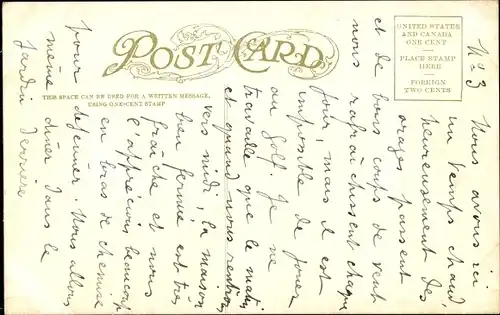 POST CARD
THIS SPACE CAN BE USED FOR A WRITTEN MESSAGE,
USING ONE-CENT STAMP
UNITED STATES
AND CANADA
ONE CENT
PLACE STAMP
HERE
FOREIGN
TWO CENTS
No 3
Nous avons ici
un temps chaud,
heureusement des
orages passent
et de bons coups de vent
nous rafraîchissent chaque
jour, mais il est
impossible de jouer
au golf. Je ne
travaille que le matin
et quand nous rentrons
vers midi, la maison
bien fermée est très
fraîche et nous
l'apprécions beaucoup
en bras de chemise
pour déjeuner. Nous allons
même dîner dans le
Jardin derrière